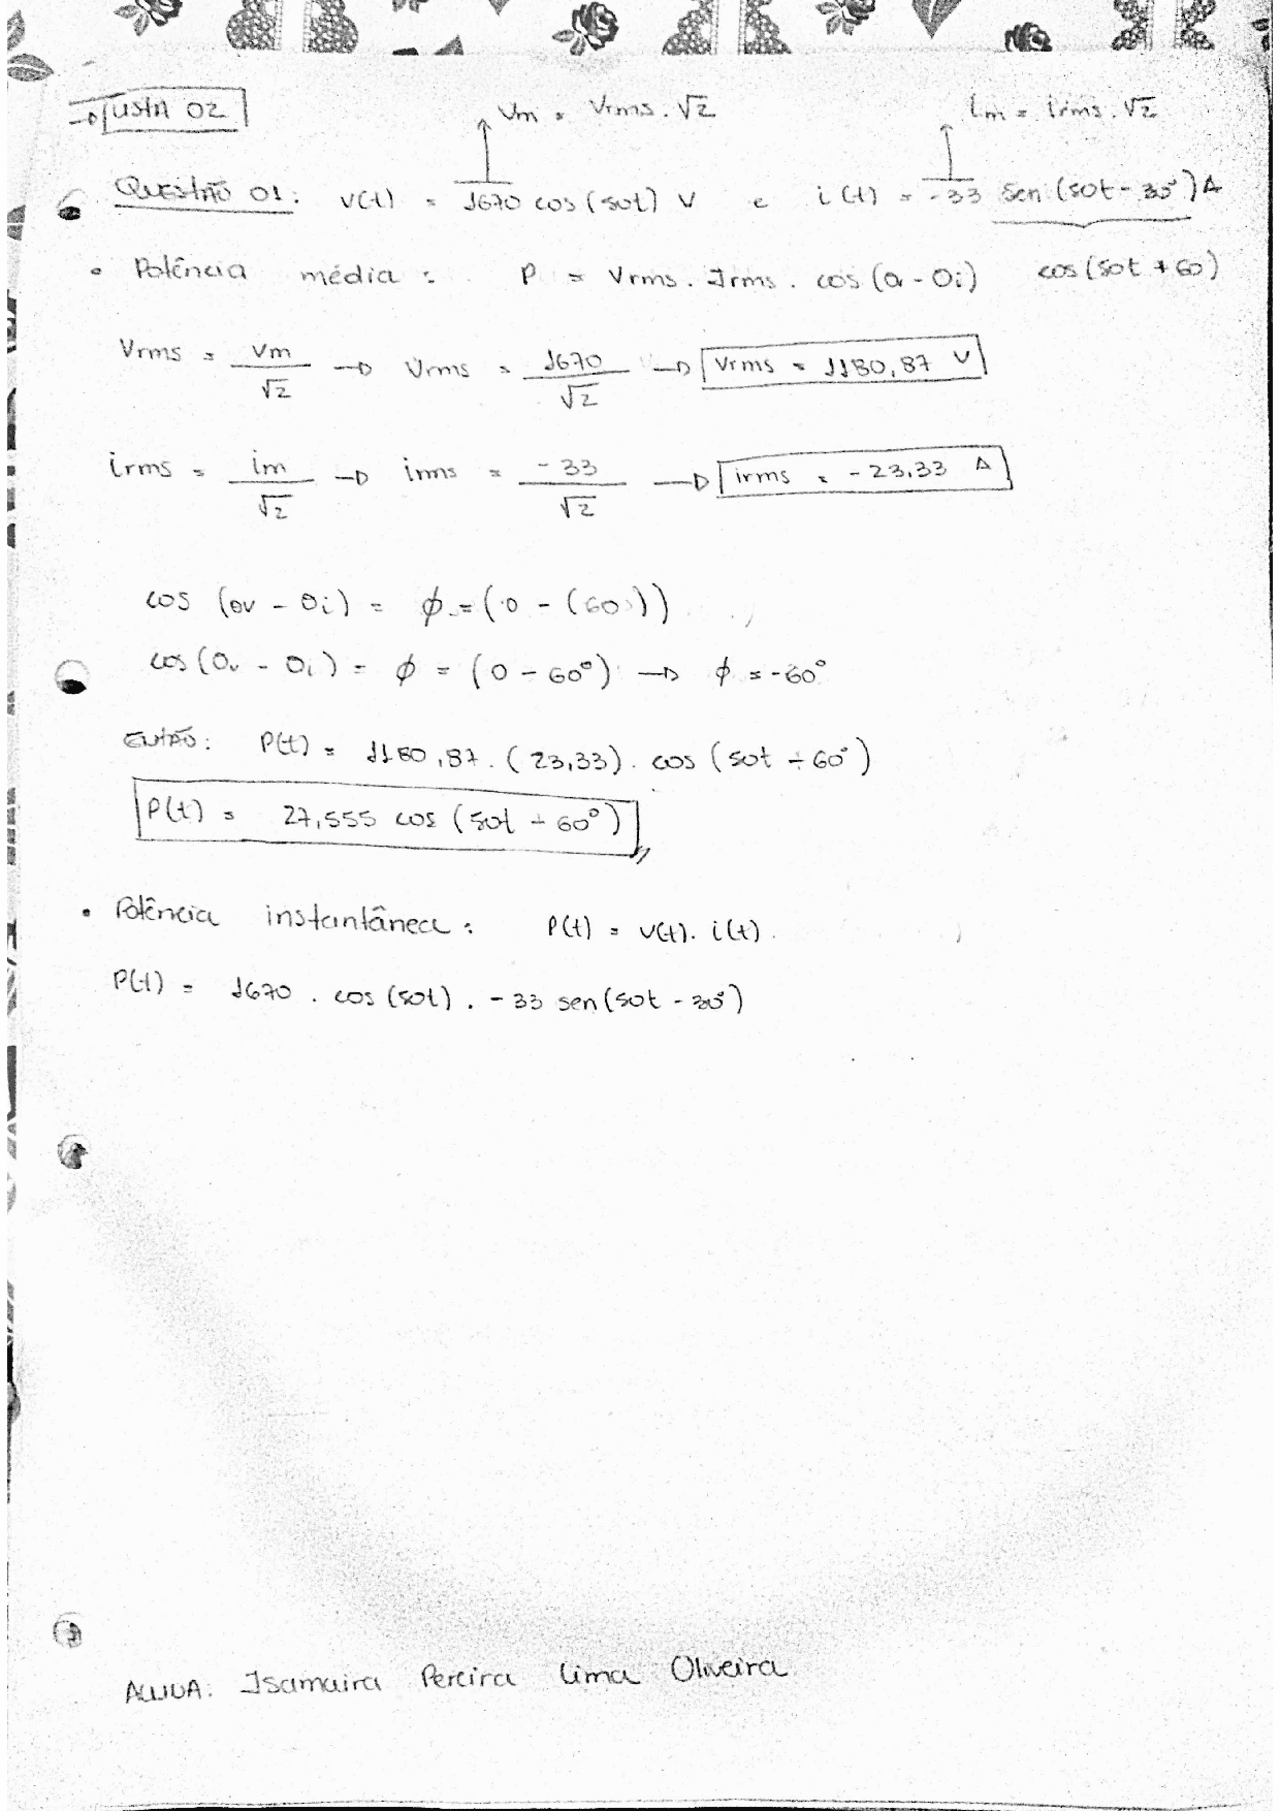 → LISTA 02
Vm = Vrms . √2
im = irms . √2
QUESTÃO 01: v(t) = 1670 cos (50t) V e i(t) = -33 sen (50t - 30°) A
• Potência média : P = Vrms . Irms . cos (θv - θi) cos (50t + 60)
Vrms = Vm/√2 → Vrms = 1670/√2 → Vrms = 1180,87 V
irms = im/√2 → irms = -33/√2 → irms = -23,33 A
cos (θv - θi) = ϕ = (0 - (60))
cos (θv - θi) = ϕ = (0 - 60°) → ϕ = -60°
ENTÃO: P(t) = 1180,87 . (23,33) . cos (50t + 60°)
P(t) = 27,555 cos (50t + 60°)
• Potência instantânea : P(t) = v(t) . i(t) .
P(t) = 1670 . cos (50t) . - 33 sen (50t - 30°)
ALUNA: Isamaira Pereira Lima Oliveira